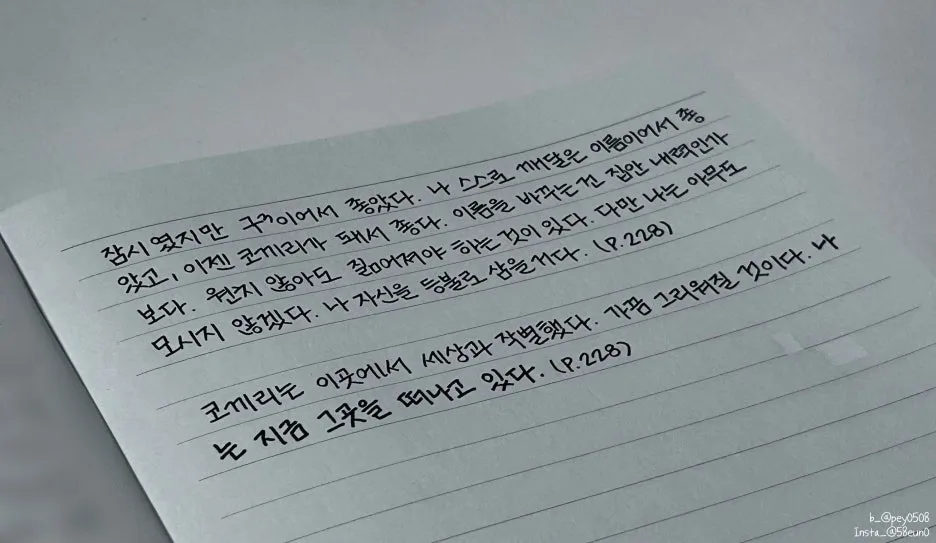 잠시였지만 구³이어서 좋았다. 나 스스로 깨달은 이름이어서 좋
았고, 이젠 코끼리가 돼서 좋다. 이름을 바꾸는 건 집안 내력인가
보다. 원치 않아도 짊어져야 하는 것이 있다. 다만 나는 아무도
모시지 않겠다. 나 자신을 등불로 삼을 거다. (P.228)
코끼리는 이곳에서 세상과 작별했다. 가끔 그리워질 것이다. 나
는 지금 그곳을 떠나고 있다. (P.228)
b_@pey0508
Insta_@58eun0